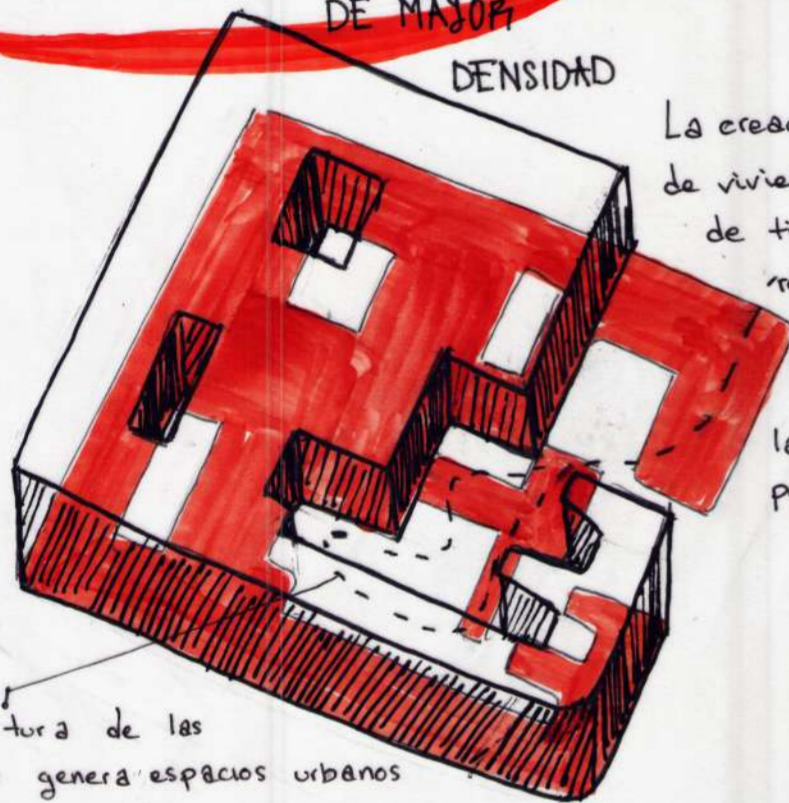 DE MAYOR
DENSIDAD
La crea
de vivie
de ti
la
tura de las
genera espacios urbanos